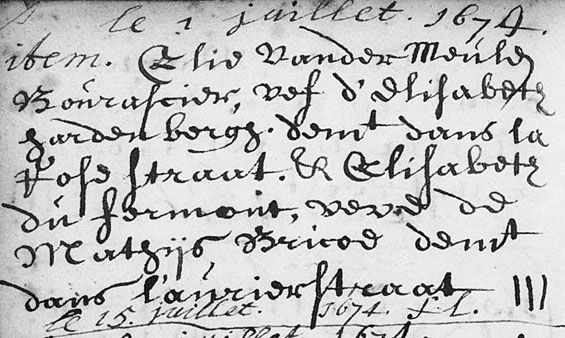 le 1 juillet. 1674.
item. Elie Vander Meulen
Bourascier, vef d'Elisabeth
hardenbergh. demt dans la
Rose straat. & Elisabeth
du fermont, veve de
Mathijs Bricoe demt
dans laurierstraat III
le 15. juillet. 1674. f. l.
juillet 1674